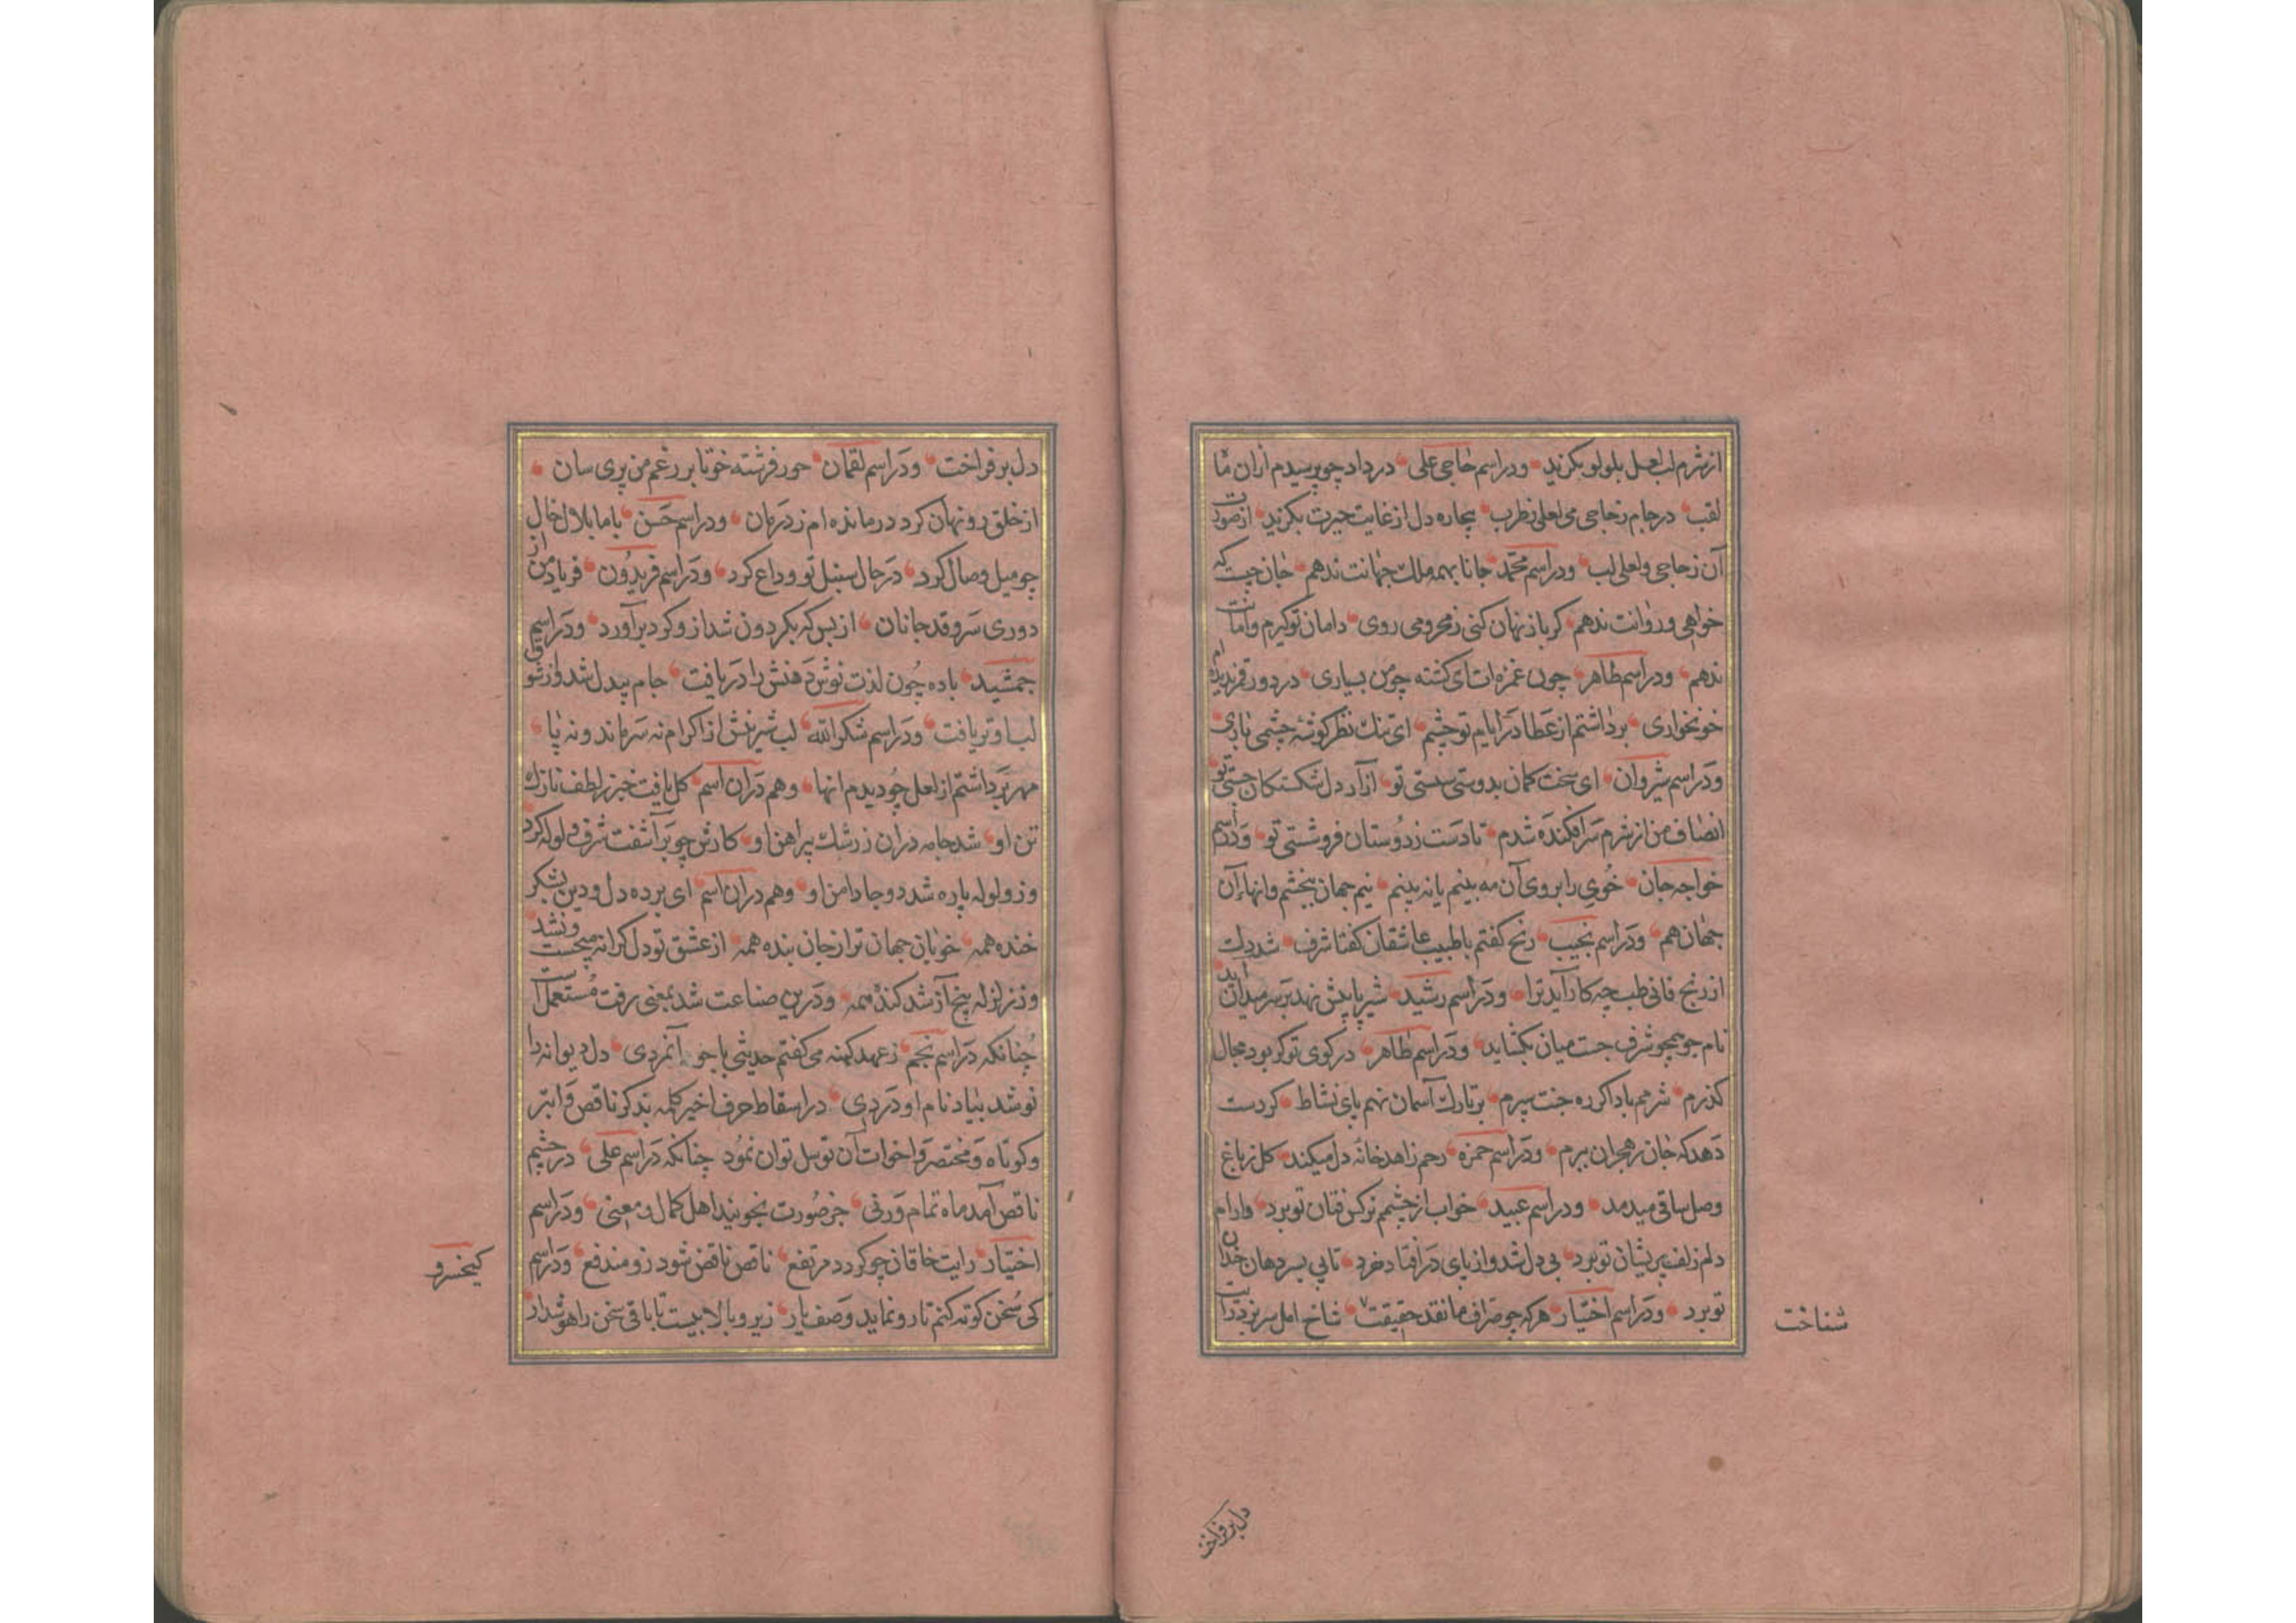 از شرم لب لعل بلولو بکزید و در اسم حاجی علی در داد چو پرسیدم ازان ما
لقب در جام زجاجی می لعلی ز طرب بیچاره دل از غایت حیرت بکزید از صورت
آن زجاجی و لعلی لب و در اسم محمد جانا بهمه ملک جهانت ندهم جان چیست که
خواهی و روانت ندهم کر باز نهان کنی ز محرومی روی دامان تو کیرم و امانت
ندهم و در اسم طاهر چون غمزه ات ای کشته چو من بسیاری در دور قمر ندیده ام
خونخواری برداشتم از عطا در ایام تو چشم ای تنک نظر کوشه چشمی باری
و در اسم شیروان ای سخت کمان بدوستی سستی تو آزار دل شکستکان جستی تو
انصاف من از شرم سرافکنده شدم تا دست ز دوستان فروشستی تو و در اسم
خواجه جان خوی را بروی آن مه بینم یا نه بینم نیم جهان ببخشم وانهاء آن
جهان هم و در اسم نجیب رنج کفتم با طبیب عاشقان کفتا شرف شد دلت
از رنج فانی طب چه کار آید ترا و در اسم رشید شیر پا پیش نهد بر سر میدان آید
نام جو همچو شرف جست میان بکشاید و در اسم طاهر در کوی تو کر بود مجال
کذرم شرمم بادا کر ره جنت سپرم بر تارک آسمان نهم پای نشاط کر دست
دهد که جان ز هجران ببرم و در اسم حمزه رحم زاهد خانه دل میکند کل ز باغ
وصل ساقی میدمد و در اسم عبید خواب از چشمم نرکس فتان تو برد وارام
دلم زلف پریشان تو برد بی دل شد و از پای در افتاد خرد تا پی بسر دهان خندان
تو برد و در اسم اختیار هر که چو صراف ما نقد حقیقت شاخ امل سر بزد رایت
شناخت
دل برفراخت
دل برفراخت و در اسم لقمان حور فرشته خو تا بر رغم من پری سان
از خلق رو نهان کرد درمانده ام ز درمان و در اسم حسن با ما بلال خال
چو میل وصال کرد در حال سنبل تو وداع کرد و در اسم فریدون فریاد من از
دوری سرو قد جانان از بس که بکردون شد ازو کرد برآورد و در اسم
جمشید باده چون لذت نوش دهنش را دریافت جام بیدل شد و از شوق
لب او تر یافت و در اسم شکرالله لب شیرینش از اکرام نه سر ماند و نه پا
مهر برداشتم از لعل چو دیدم انها و هم دران اسم کل یافت خبر ز لطف نازک
تن او شد جامه دران ز رشک پیراهن او کارش چو برآشفت شرف ولوله کرد
وز ولوله پاره شد دو جا دامن او و هم دران اسم ای برده دل و دین بشکر
خنده همه خوبان جهان ترا ز جان بنده همه از عشق تو دل کرانه میجست و نشد
وز زلزله بیخ آز شد کنده همه و درین صناعت شد بمعنی رفت مستعمل است
چنانکه در اسم نجم ز عهد کهنه می کفتم حدیثی با جوانمردی دل دیوانه را
نو شد بیاد نام او دردی در اسقاط حرف اخیر کلمه بذکر ناقص و ابتر
و کوتاه و مختصر و اخوات آن توسل توان نمود چنانکه در اسم علی در چشم
ناقص آمد ماه تمام ورنی جز صورت نجویند اهل کمال و معنی و در اسم
اختیار رایت خاقان چو کردد مرتفع ناقص ناقص شود زو مندفع و در اسم
کی سخن کوته کنم تا رو نماید وصف یار زیر و بالا بیست تا باقی سخن را هوشدار
کیخسرو